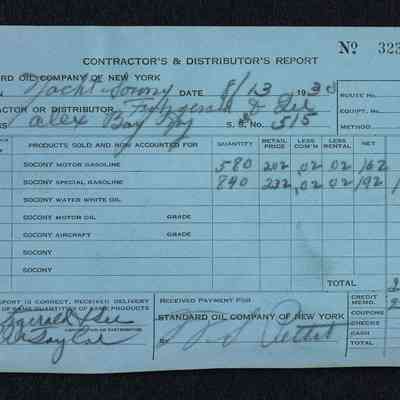 CONTRACTOR'S & DISTRIBUTOR'S REPORT
Nº 323
ARD OIL COMPANY OF NEW YORK
Yacht Socony DATE 8/13 1930
ROUTE No.
ACTOR OR DISTRIBUTOR Fitzgerald & Lee
EQUIPT. No.
SS Alex Bay NY S. S. No. 515
METHOD
PRODUCTS SOLD AND NOW ACCOUNTED FOR QUANTITY RETAIL PRICE LESS COM'N LESS RENTAL NET
SOCONY MOTOR GASOLINE 580 202 .02 .02 162
SOCONY SPECIAL GASOLINE 840 232 .02 .02 192
SOCONY WATER WHITE OIL
SOCONY MOTOR OIL GRADE
SOCONY AIRCRAFT GRADE
SOCONY
SOCONY
TOTAL
REPORT IS CORRECT, RECEIVED DELIVERY
OF SAME QUANTITIES OF SAME PRODUCTS
RECEIVED PAYMENT FOR
CREDIT MEMO.
Fitzgerald & Lee
STANDARD OIL COMPANY OF NEW YORK
COUPONS
CONTRACTOR OR DISTRIBUTOR
CHECKS
Taylor
BY
CASH
TOTAL